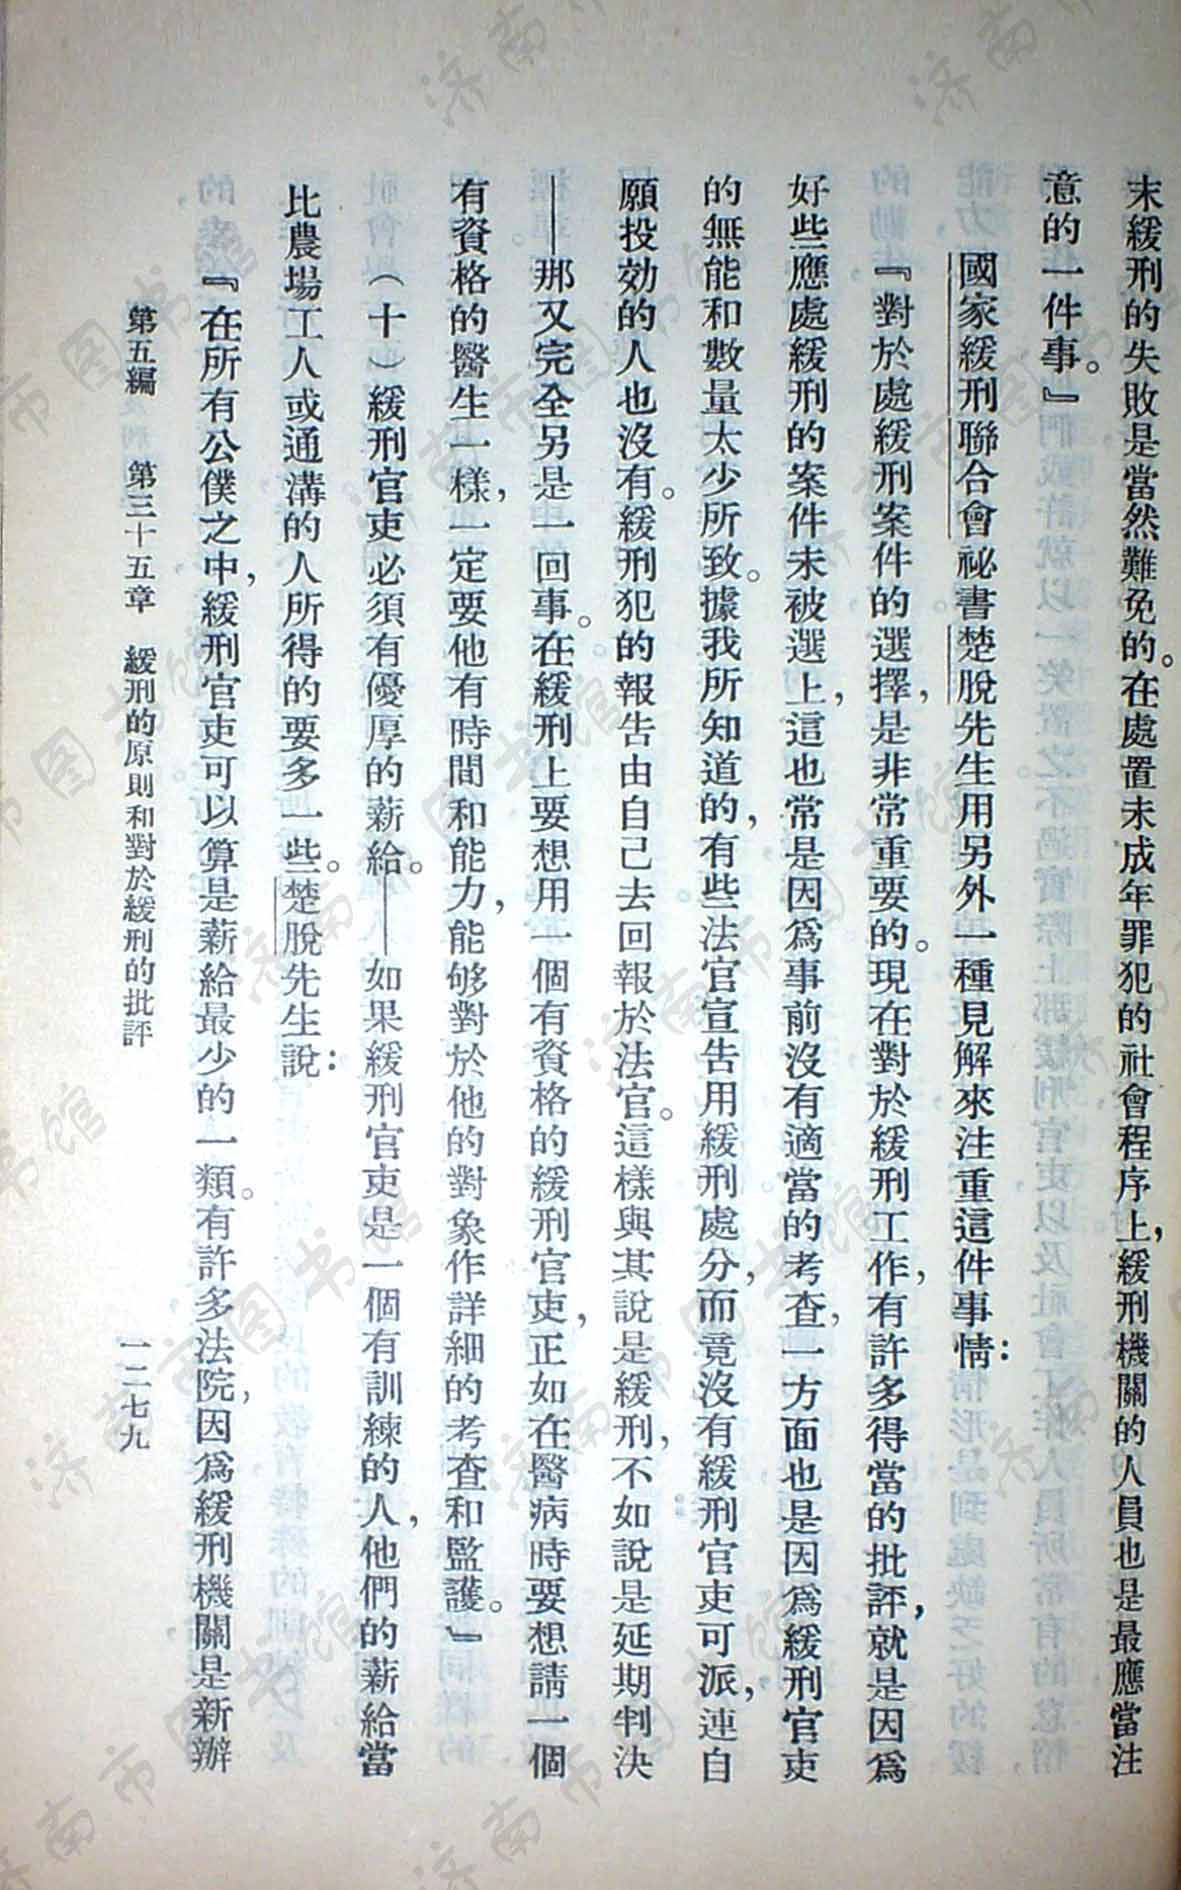 末緩刑的失敗是當然難免的。在處置未成年罪犯的社會程序上，緩刑機關的人員也是最應當注
意的一件事。』
國家緩刑聯合會祕書楚脫先生用另外一種見解來注重這件事情：
『對於處緩刑案件的選擇，是非常重要的。現在對於緩刑工作，有許多得當的批評，就是因爲
好些應處緩刑的案件未被選上，這也常是因爲事前沒有適當的考查，一方面也是因爲緩刑官吏
的無能和數量太少所致。據我所知道的，有些法官宣告用緩刑處分，而竟沒有緩刑官吏可派，連自
願投効的人也沒有。緩刑犯的報告由自己去回報於法官。這樣與其說是緩刑，不如說是延期判決
——那又完全另是一回事。在緩刑上要想用一個有資格的緩刑官吏，正如在醫病時要想請一個
有資格的醫生一樣，一定要他有時間和能力，能够對於他的對象作詳細的考查和監護。』
（十）緩刑官吏必須有優厚的薪給。——如果緩刑官吏是一個有訓練的人，他們的薪給當
比農場工人或通溝的人所得的要多一些。楚脫先生說：
『在所有公僕之中，緩刑官吏可以算是薪給最少的一類。有許多法院，因爲緩刑機關是新辦
第五編　第三十五章　緩刑的原則和對於緩刑的批評
一二七九
济南市图书馆